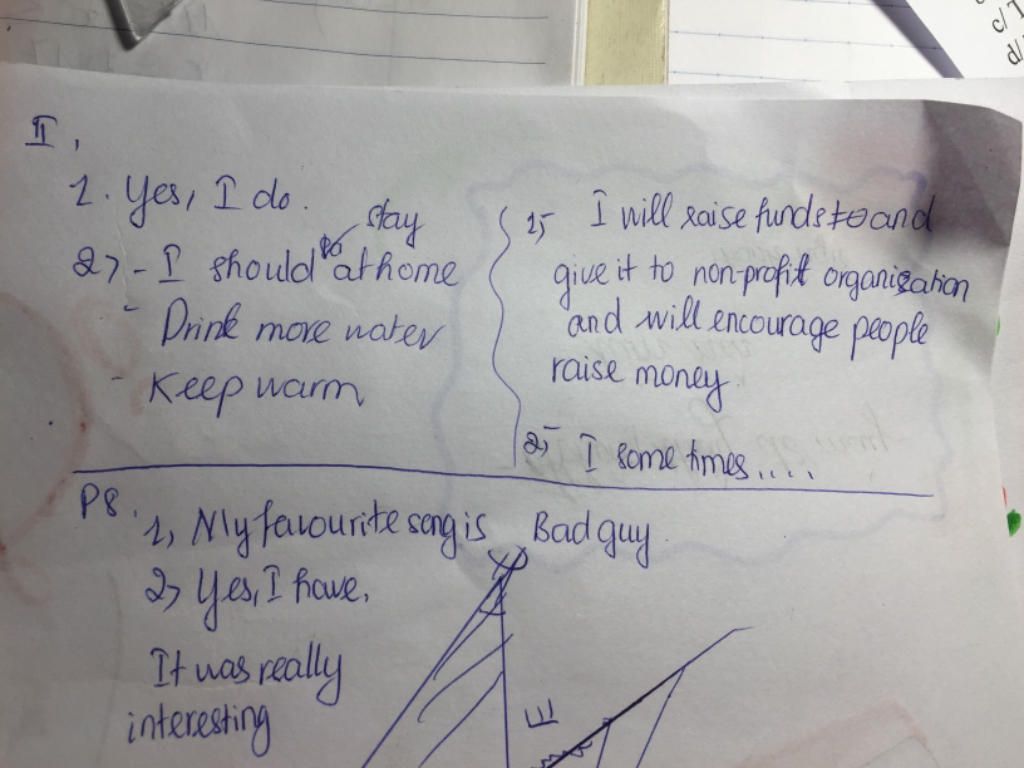 II,
1. Yes, I do.
stay
2> - I should at home
- Drink more water
- Keep warm
1, I will raise funds to and
give it to non-profit organization
and will encourage people
raise money.
2, I some times....
P8.
1, My favourite song is Bad guy.
2> Yes, I have.
It was really
interesting
E
c/T
d/